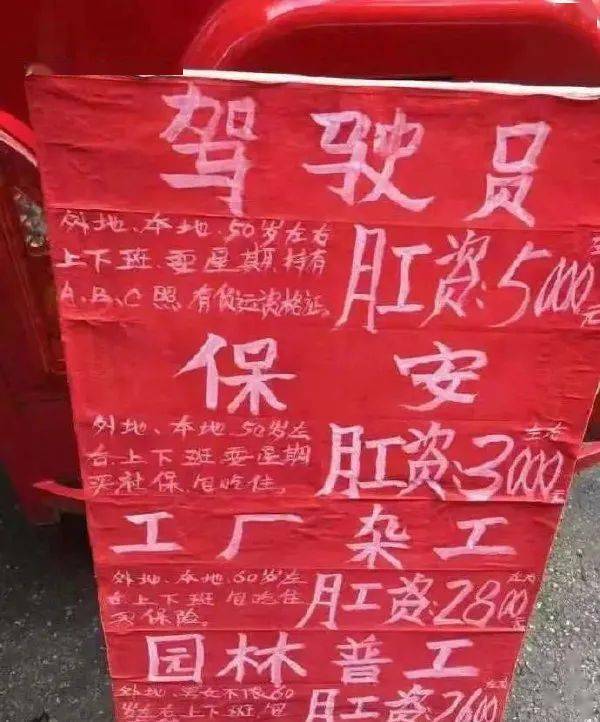 驾驶员
外地、本地、50岁左右
上下班、耍星期、持有
A、B、C照、有货运资格证。
月工资:5000元
保安
外地、本地、50岁左
右、上下班耍星期
买社保、包吃住。
月工资:3000元左右
工厂杂工
外地、本地、60岁左
右上下班包吃住
买保险。
月工资:2800元左右
园林普工
外地、男女不限60
岁左右上下班、包
月工资:2600左右